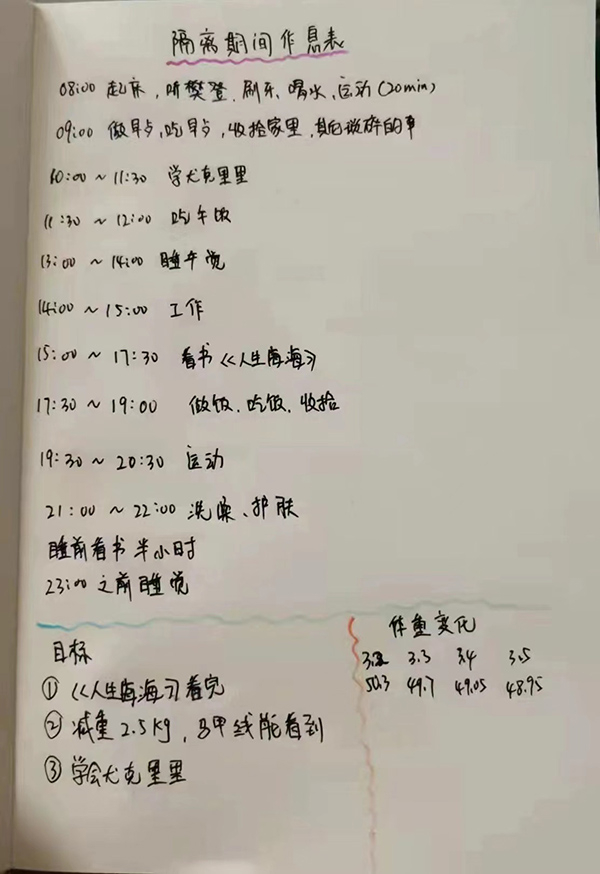 隔离期间作息表
08:00 起床,听樊登、刷牙、喝水、运动(20min)
09:00 做早点,吃早点,收拾家里,其它琐碎的事
10:00 ~ 11:30 学尤克里里
11:30 ~ 12:00 吃午饭
13:00 ~ 14:00 睡午觉
14:00 ~ 15:00 工作
15:00 ~ 17:30 看书《人生海海》
17:30 ~ 19:00 做饭、吃饭、收拾
19:30 ~ 20:30 运动
21:00 ~ 22:00 洗澡、护肤
睡前看书半小时
23:00 之前睡觉
目标
① 《人生海海》看完
② 减重2.5kg,马甲线能看到
③ 学会尤克里里
体重变化
3.2 3.3 3.4 3.5
50.3 49.7 49.05 48.95